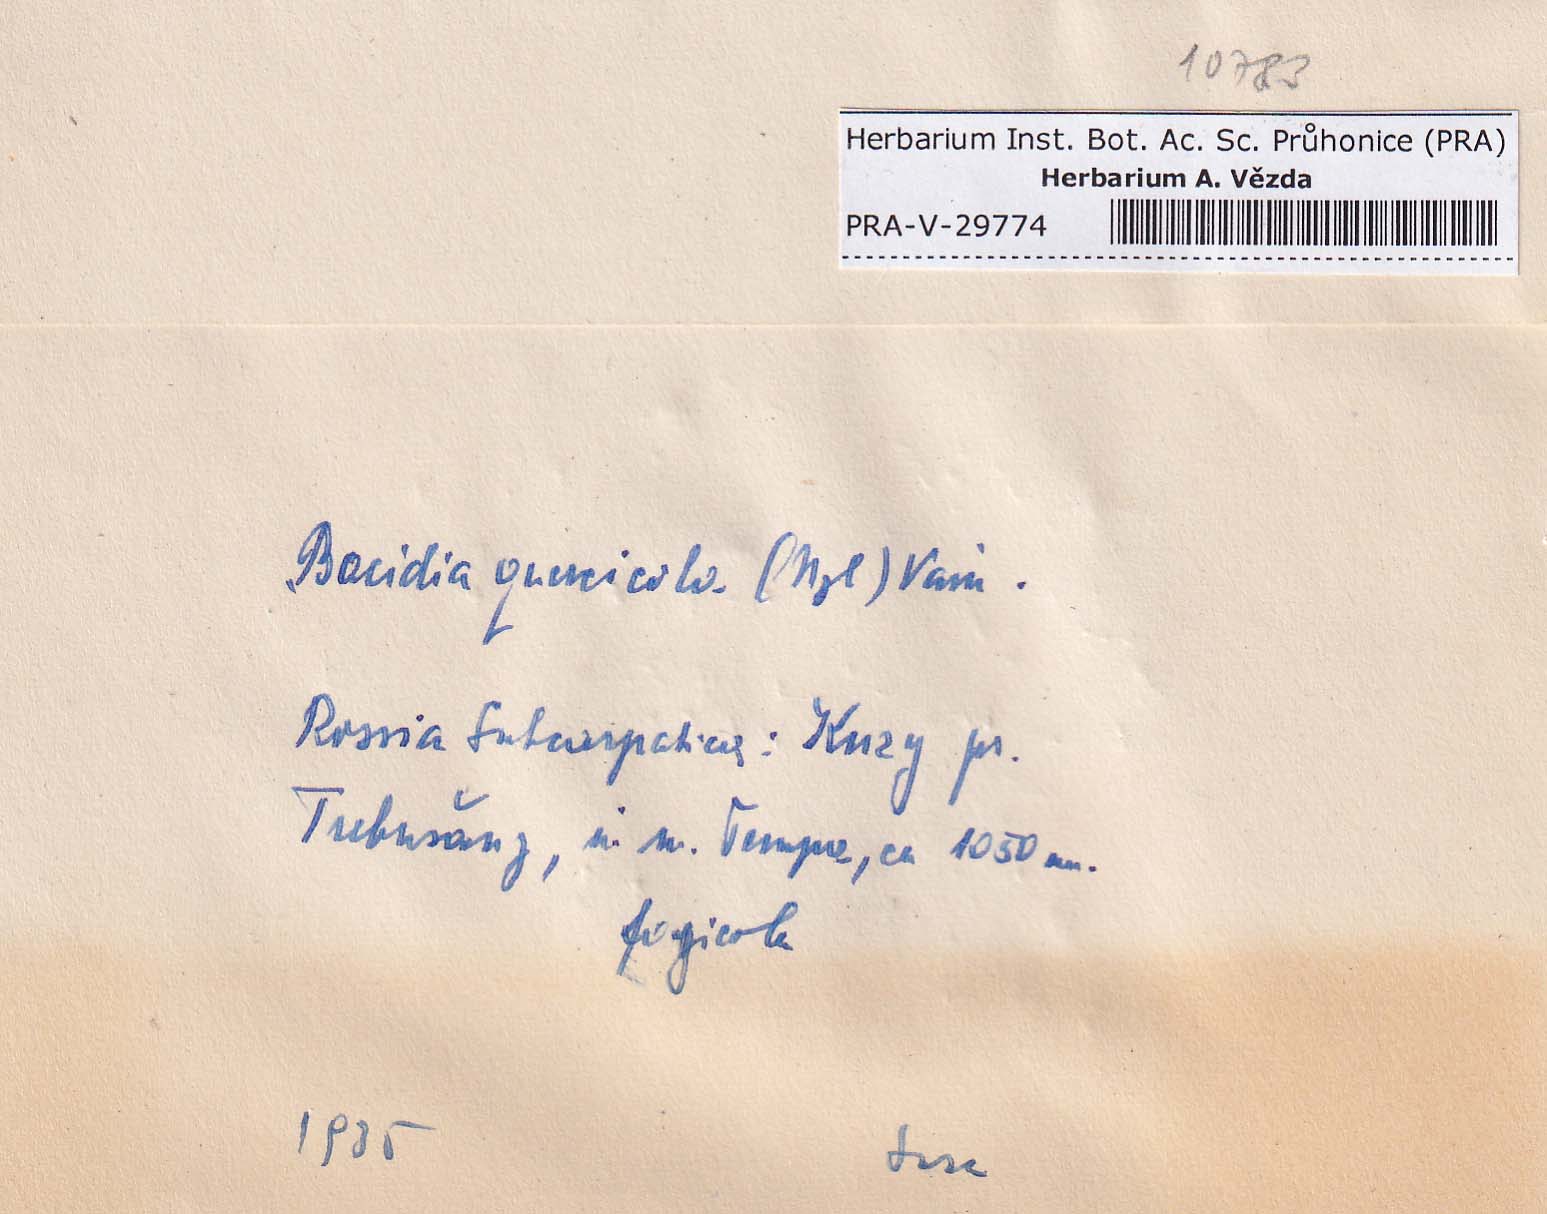 10783
Herbarium Inst. Bot. Ac. Sc. Průhonice (PRA)
Herbarium A. Vězda
PRA-V-29774
Bacidia quercicola (Nyl) Vain.
Rossia Subcarpatica: Kuzy pr.
Trebušany, in m. Tempa, ca 1050 m.
fagicola
1935 Suza